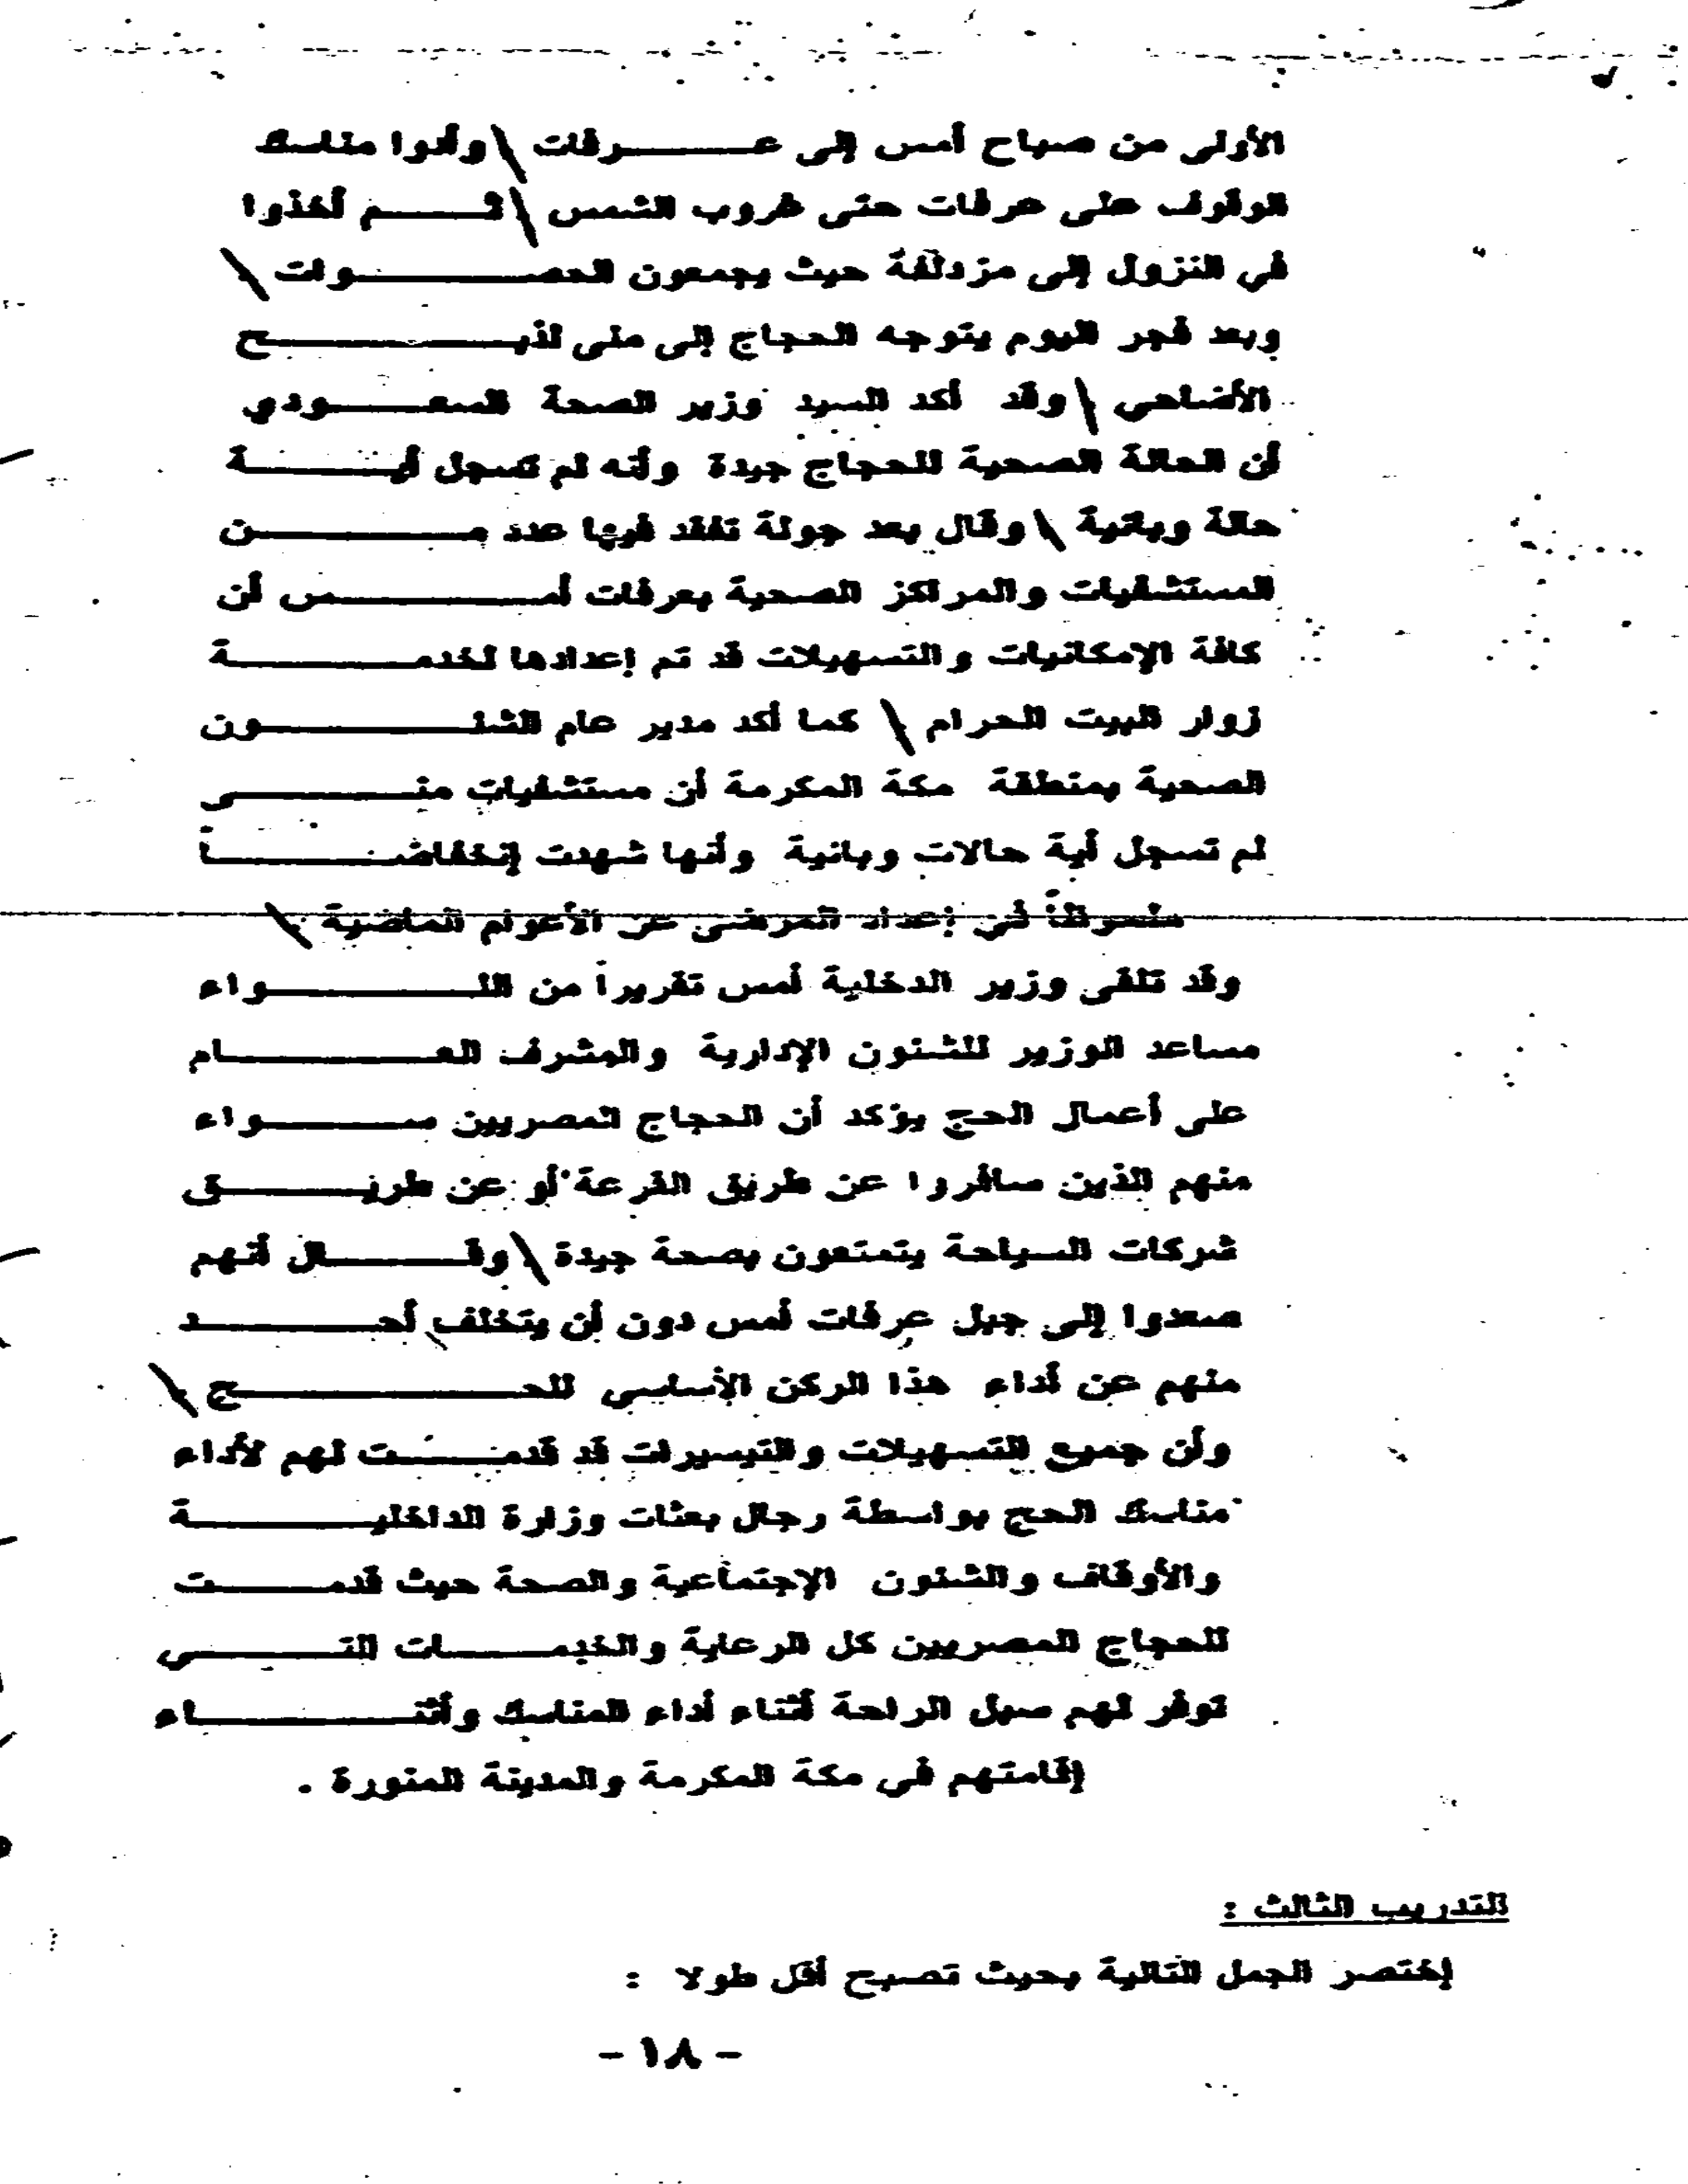 الأولى من صباح أمس إلى عـــــرفات \ وأدوا مناسك
الوقوف على عرفات حتى غروب الشمس \ ثـــــم أخذوا
في النزول إلى مزدلفة حيث يجمعون الحصـــــوات \
وبعد فجر اليوم يتوجه الحجاج إلى منى لذبـــــح
الأضاحى \ وقد أكد السيد وزير الصحة السعـــــودي
أن الحالة الصحية للحجاج جيدة وأنه لم تسجل أيـــــة
حالة وبائية \ وقال بعد جولة تفقد فيها عدد مـــــن
المستشفيات والمراكز الصحية بعرفات أمـــــس أن
كافة الإمكانيات والتسهيلات قد تم إعدادها لخدمـــــة
زوار البيت الحرام \ كما أكد مدير عام الشئـــــون
الصحية بمنطقة مكة المكرمة أن مستشفيات منـــــى
لم تسجل أية حالات وبائية وأنها شهدت إنخفاضـــــاً
ملحوظاً في إعداد المرضى عن الأعوام الماضية \
وقد تلقى وزير الدخلية أمس تقريراً من اللـــــواء
مساعد الوزير للشئون الإدارية والمشرف العـــــام
على أعمال الحج يؤكد أن الحجاج المصريين ســـــواء
منهم الذين سافروا عن طريق القرعة أو عن طريـــــق
شركات السياحة يتمتعون بصحة جيدة \ وقـــــال أنهم
صعدوا إلى جبل عرفات أمس دون أن يتخلف أحـــــد
منهم عن أداء هذا الركن الأساسى للحـــــج \
وأن جميع التسهيلات والتيسيرات قد قدمـــــت لهم لأداء
مناسك الحج بواسطة رجال بعثات وزارة الداخليـــــة
والأوقاف والشئون الإجتماعية والصحة حيث قدمـــــت
للحجاج المصريين كل الرعاية والخدمـــــات التـــــى
توفر لهم سبل الراحة أثناء أداء المناسك وأثنـــــاء
إقامتهم فى مكة المكرمة والمدينة المنورة .
التدريب الثالث :
إختصر الجمل التالية بحيث تصبح أقل طولا :
- ١٨ -